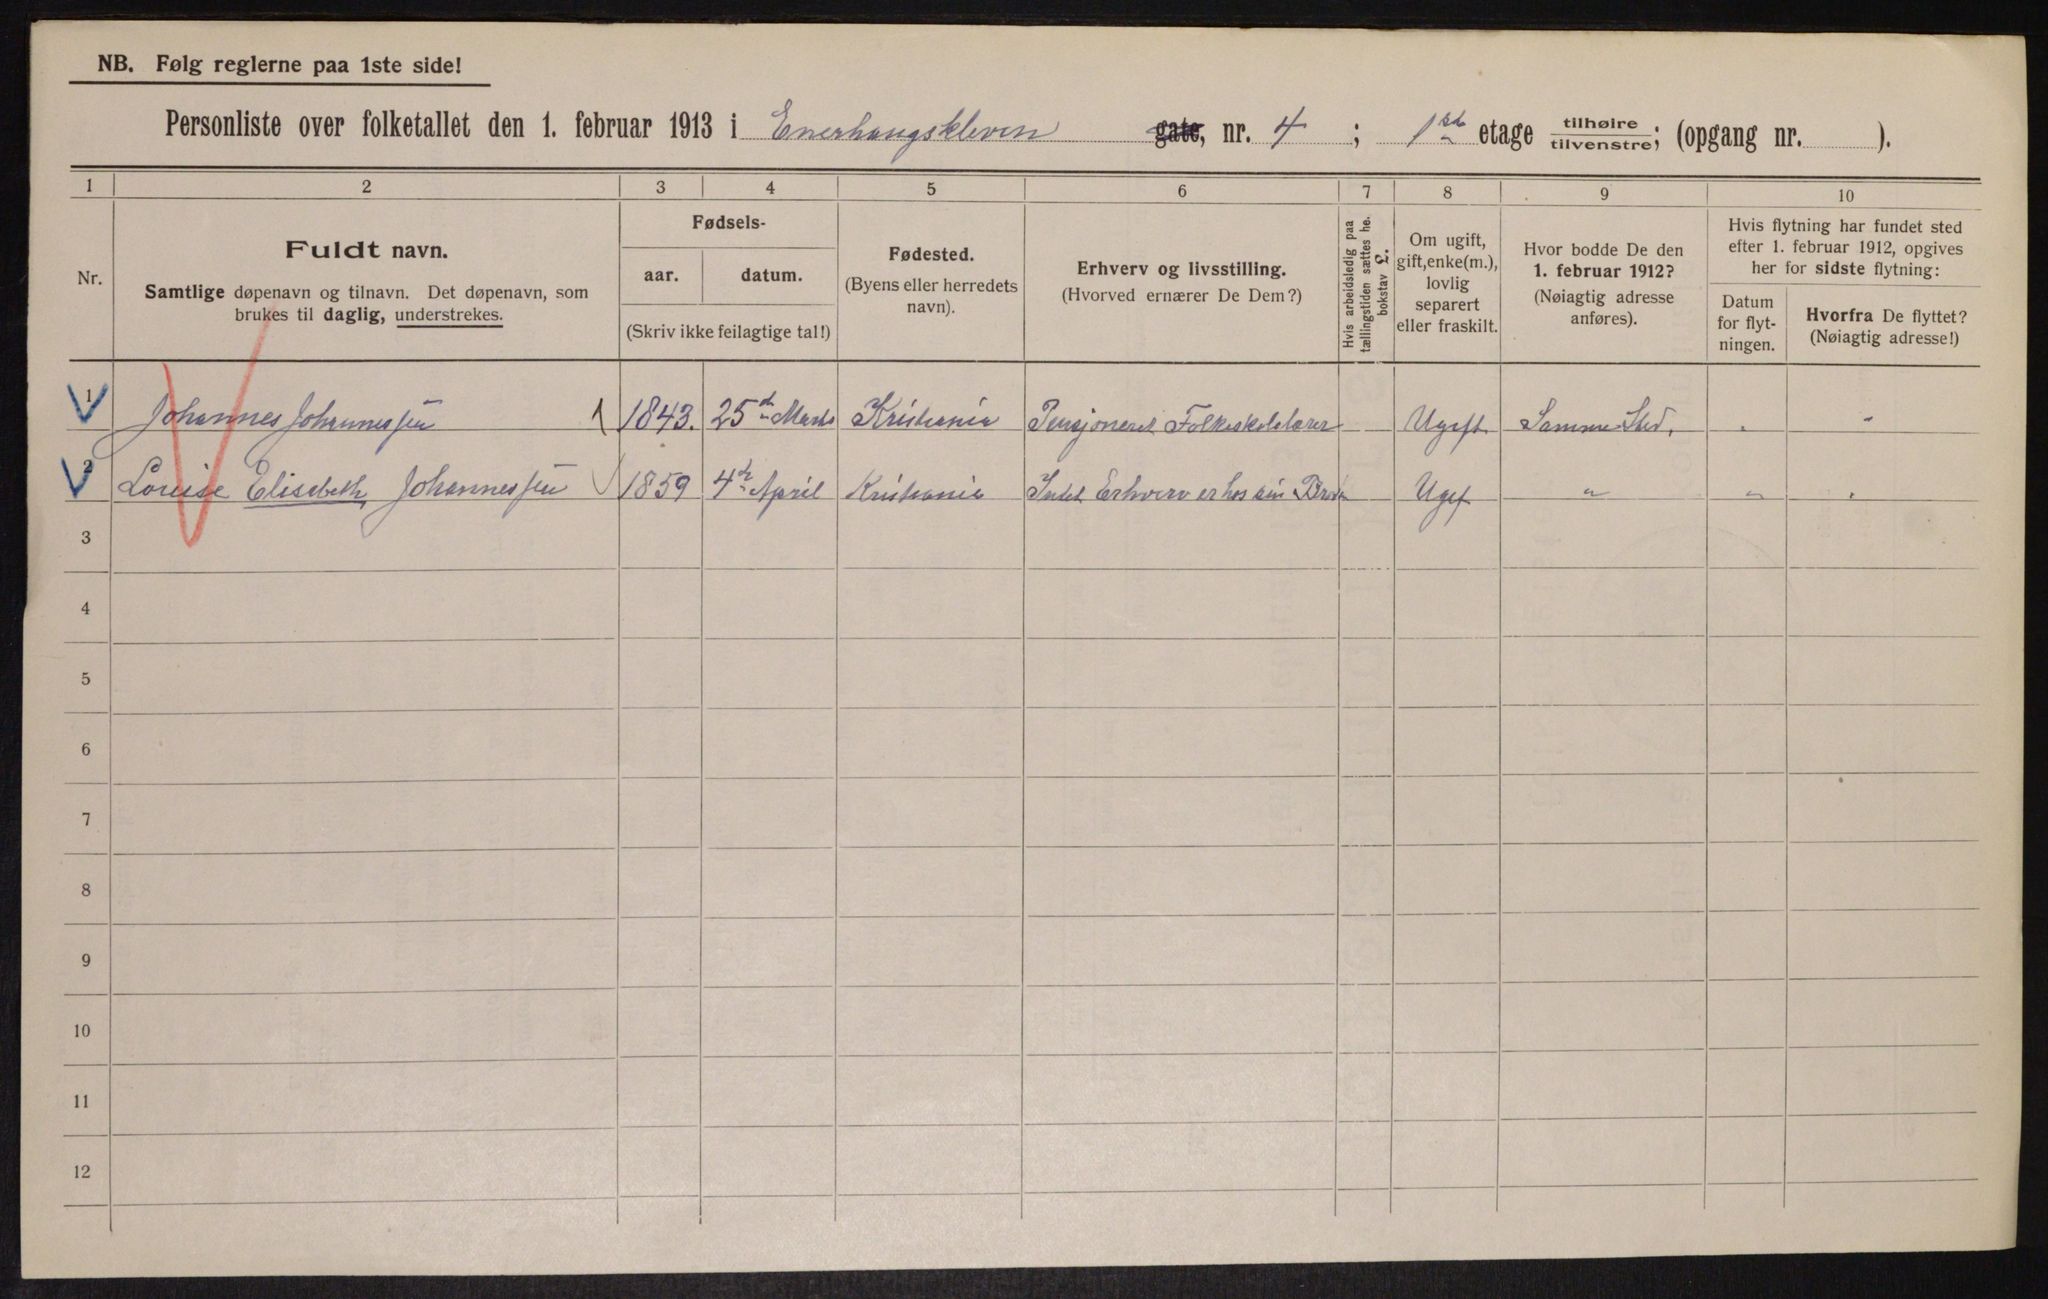 NB. Følg reglerne paa 1ste side!
Personliste over folketallet den 1. februar 1913 i Enerhaugskleven gate, nr. 4 ; 1ste etage tilhøire/tilvenstre; (opgang nr. ).
1 2 3 4 5 6 7 8 9 10
Nr.
Fuldt navn.
Samtlige døpenavn og tilnavn. Det døpenavn, som
brukes til daglig, understrekes.
Fødsels-
aar. datum.
(Skriv ikke feilagtige tal!)
Fødested.
(Byens eller herredets
navn).
Erhverv og livsstilling.
(Hvorved ernærer De Dem?)
Hvis arbeidsledig paa
tællingstiden sættes he.
bokstav L.
Om ugift,
gift, enke(m.),
lovlig
separert
eller fraskilt.
Hvor bodde De den
1. februar 1912?
(Nøiagtig adresse
anføres).
Hvis flytning har fundet sted
efter 1. februar 1912, opgives
her for sidste flytning:
Datum
for flyt-
ningen.
Hvorfra De flyttet?
(Nøiagtig adresse!)
1 Johannes Johannessen 1843. 25de Marts Kristiania Pensjoneret Folkeskolelærer Ugift Samme Sted. " "
2 Louise Elisabeth Johannessen 1859 4de April Kristiania Intet Erhverv er hos sin Broder Ugift " " "
3
4
5
6
7
8
9
10
11
12